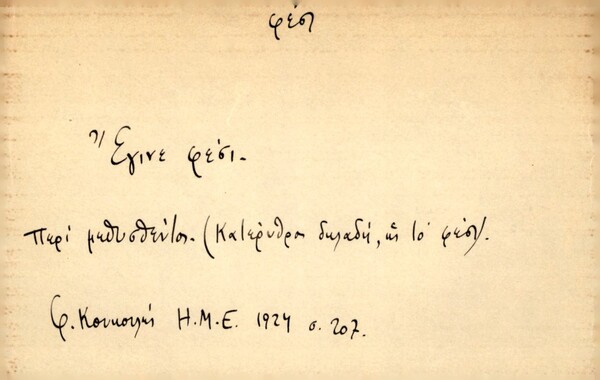 φέσι
Ἔγινε φέσι.
Περί μεθυσθέντος. (Κατέρυθρος δηλαδή, ὡς τό φέσι).
Φ. Κουκουλές Η.Μ.Ε. 1924 σ. 207.